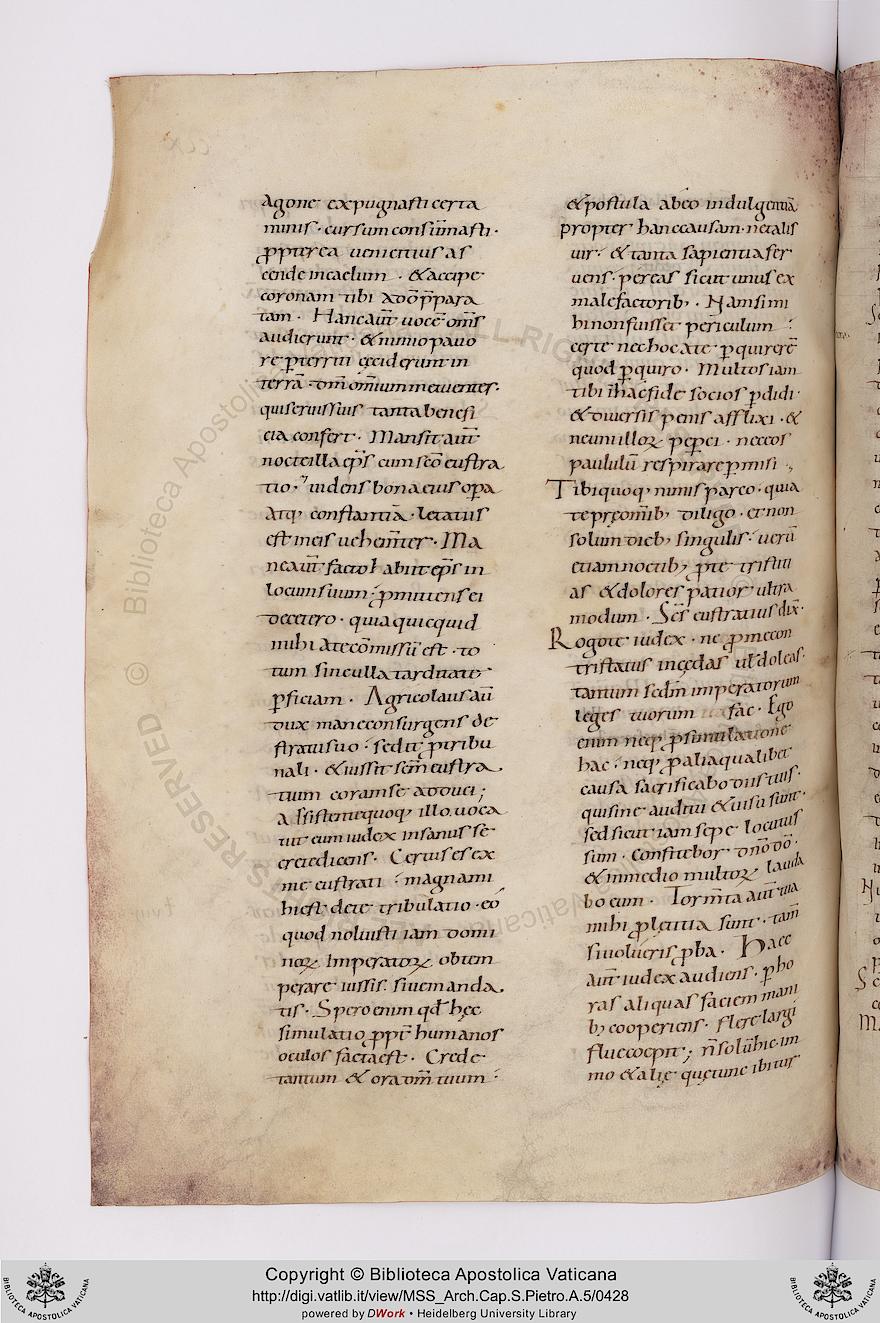 agone expugnasti certa
minis · cursum consūmasti ·
p̄pterea uenientiuis as
cende in caelum · & accipe
coronam tibi a dō p̄para
tam · Hanc aūt uocē om̄s
audierunt · & nimio pauo
re p̄territi ceciderunt in
terrā
qui seruissiuis tanta benefi
cia confert · Mansit aūt
nocte illa ep̄s cum sc̄o eustra
tio · uidens bona eius op̄a
atq; constantiā · letatus
est in eis uehem̄ter · Ma
ne aūt facto abiit ep̄s in
locum suum · p̄mittens ei
decetero · quia quicquid
mihi a te cōmissū est · to
tum sine ulla tarditate
p̄ficiam · Agricolaus aū
dux mane consurgens de
stratu suo · sedit p̄ tribu
nali · & iussit sc̄m eustra
tium coram se adduci ;
assistente quoq; illo uoca
uit eum iudex insanus se
crete dicens · Certus es ex
me eustrati · magnam
hic est de te tribulatio · eo
quod noluisti iam domi
noꝝ imperatoꝝ obtem
perare iussis siue manda
tis · Spero enim qđ hęc
simulatio p̄pt̄ humanos
oculos facta est · Crede
tantum & ora dm̄ tuum ·
& postula ab eo indulgentiā
propter hanc causam · ne talis
uir · & tanta sapientia fer
uens · pereas sicut unus ex
malefactorib; · Nam si mi
hi non fuisset periculum
certe nec hoc a te p̄quirerē
quod p̄quiro · Multos iam
tibi in hac fide socios p̄didi ·
& diuersis penis afflixi · &
nemini illoꝝ peperci · nec eos
paululū respirare p̄misi ·,
Tibi quoq; nimis parco · quia
te pre om̄ib; diligo · et non
solum dieb; singulis · uerū
etiam noctib; p̄ te tristiti
as & dolores patior ultra
modum · Sc̄s eustratius dix̄ ·
Rogo te iudex · ne p̄ me con
tristatus incedas ut doleas ·
tantum sedm̄ imperatorum
leges tuorum fac · Ego
enim neq; p̄ simulatione
hac · neq; p̄ alia qualibet
causa sacrificabo diis tuis ·
qui sine auditu & uisu sunt ·
sed sicut iam sepe locutus
sum · Confitebor dn̄o dō ·
& in medio multoꝝ lauda
bo eum · Torm̄ta aūt tua
mihi p̄ letitia sunt · tam̄
si uolueris p̄ba · Haec
aūt iudex audiens · p̄ ho
ras aliquas faciem mani
b; cooperiens · flere largi
flue coepit ; n̄ solū hic · im
mo & alię quę tunc ibi tur
Copyright © Biblioteca Apostolica Vaticana
http://digi.vatlib.it/view/MSS_Arch.Cap.S.Pietro.A.5/0428
powered by DWork • Heidelberg University Library